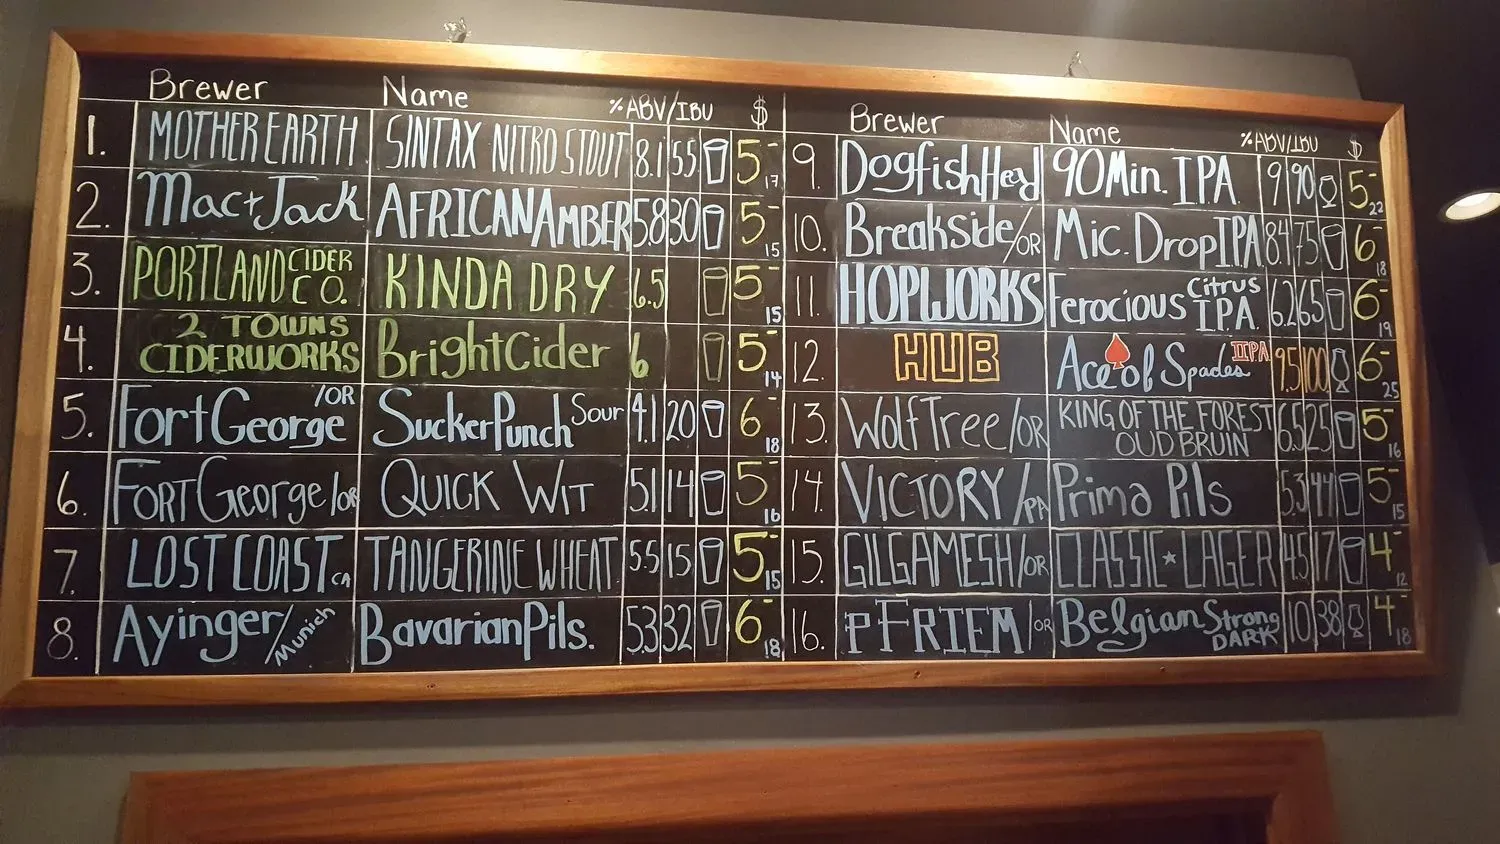 Brewer Name % ABV/IBU $
1. MOTHER EARTH SINTAX NITRO STOUT 8.1 55 5- 17
2. Mac+Jack AFRICAN AMBER 5.8 30 5- 15
3. PORTLAND CIDER CO. KINDA DRY 6.5 5- 15
4. 2 TOWNS CIDERWORKS BrightCider 6 5- 14
5. Fort George /OR SuckerPunch Sour 4.1 20 6- 18
6. FORT George /OR QUICK WIT 5.1 14 5- 16
7. LOST COAST CA TANGERINE WHEAT 5.5 15 5- 15
8. Ayinger/Munich Bavarian Pils. 5.3 32 6- 18
Brewer Name % ABV/IBU $
9. Dogfish Head 90 Min. IPA 9 90 5- 22
10. Breakside/OR Mic. Drop IPA 8.4 75 6- 18
11. HOPWORKS Ferocious Citrus IPA 6.2 65 6- 19
12. HUB Ace of Spades IIPA 9.5 100 6- 25
13. Wolf Tree/OR KING OF THE FOREST OUD BRUIN 6.5 25 5- 16
14. VICTORY/PA Prima Pils 5.3 44 5- 15
15. GILGAMESH/OR CLASSIC★LAGER 4.5 17 4- 12
16. PFRIEM/OR Belgian Strong DARK 10 38 4- 18